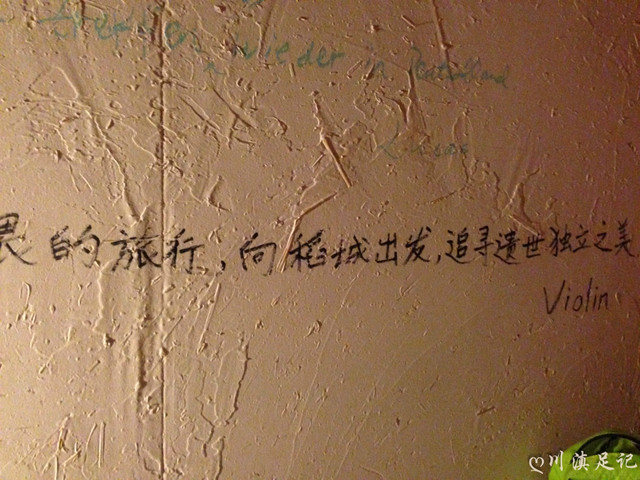 treffen wieder in Deutschland
畏的旅行，向稻城出发，追寻遗世独立之美
Violin
川滇足记